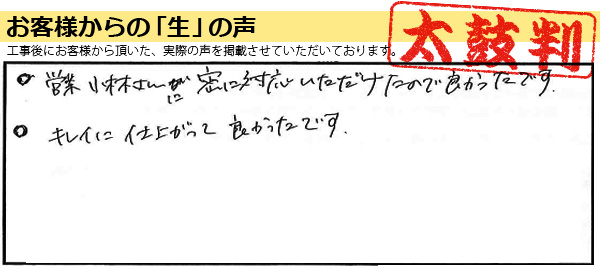 お客様からの「生」の声
太鼓判
工事後にお客様から頂いた、実際の声を掲載させていただいております。
営業 小林さんが密に対応いただけたので良かったです.
に
キレイに仕上がって良かったです.